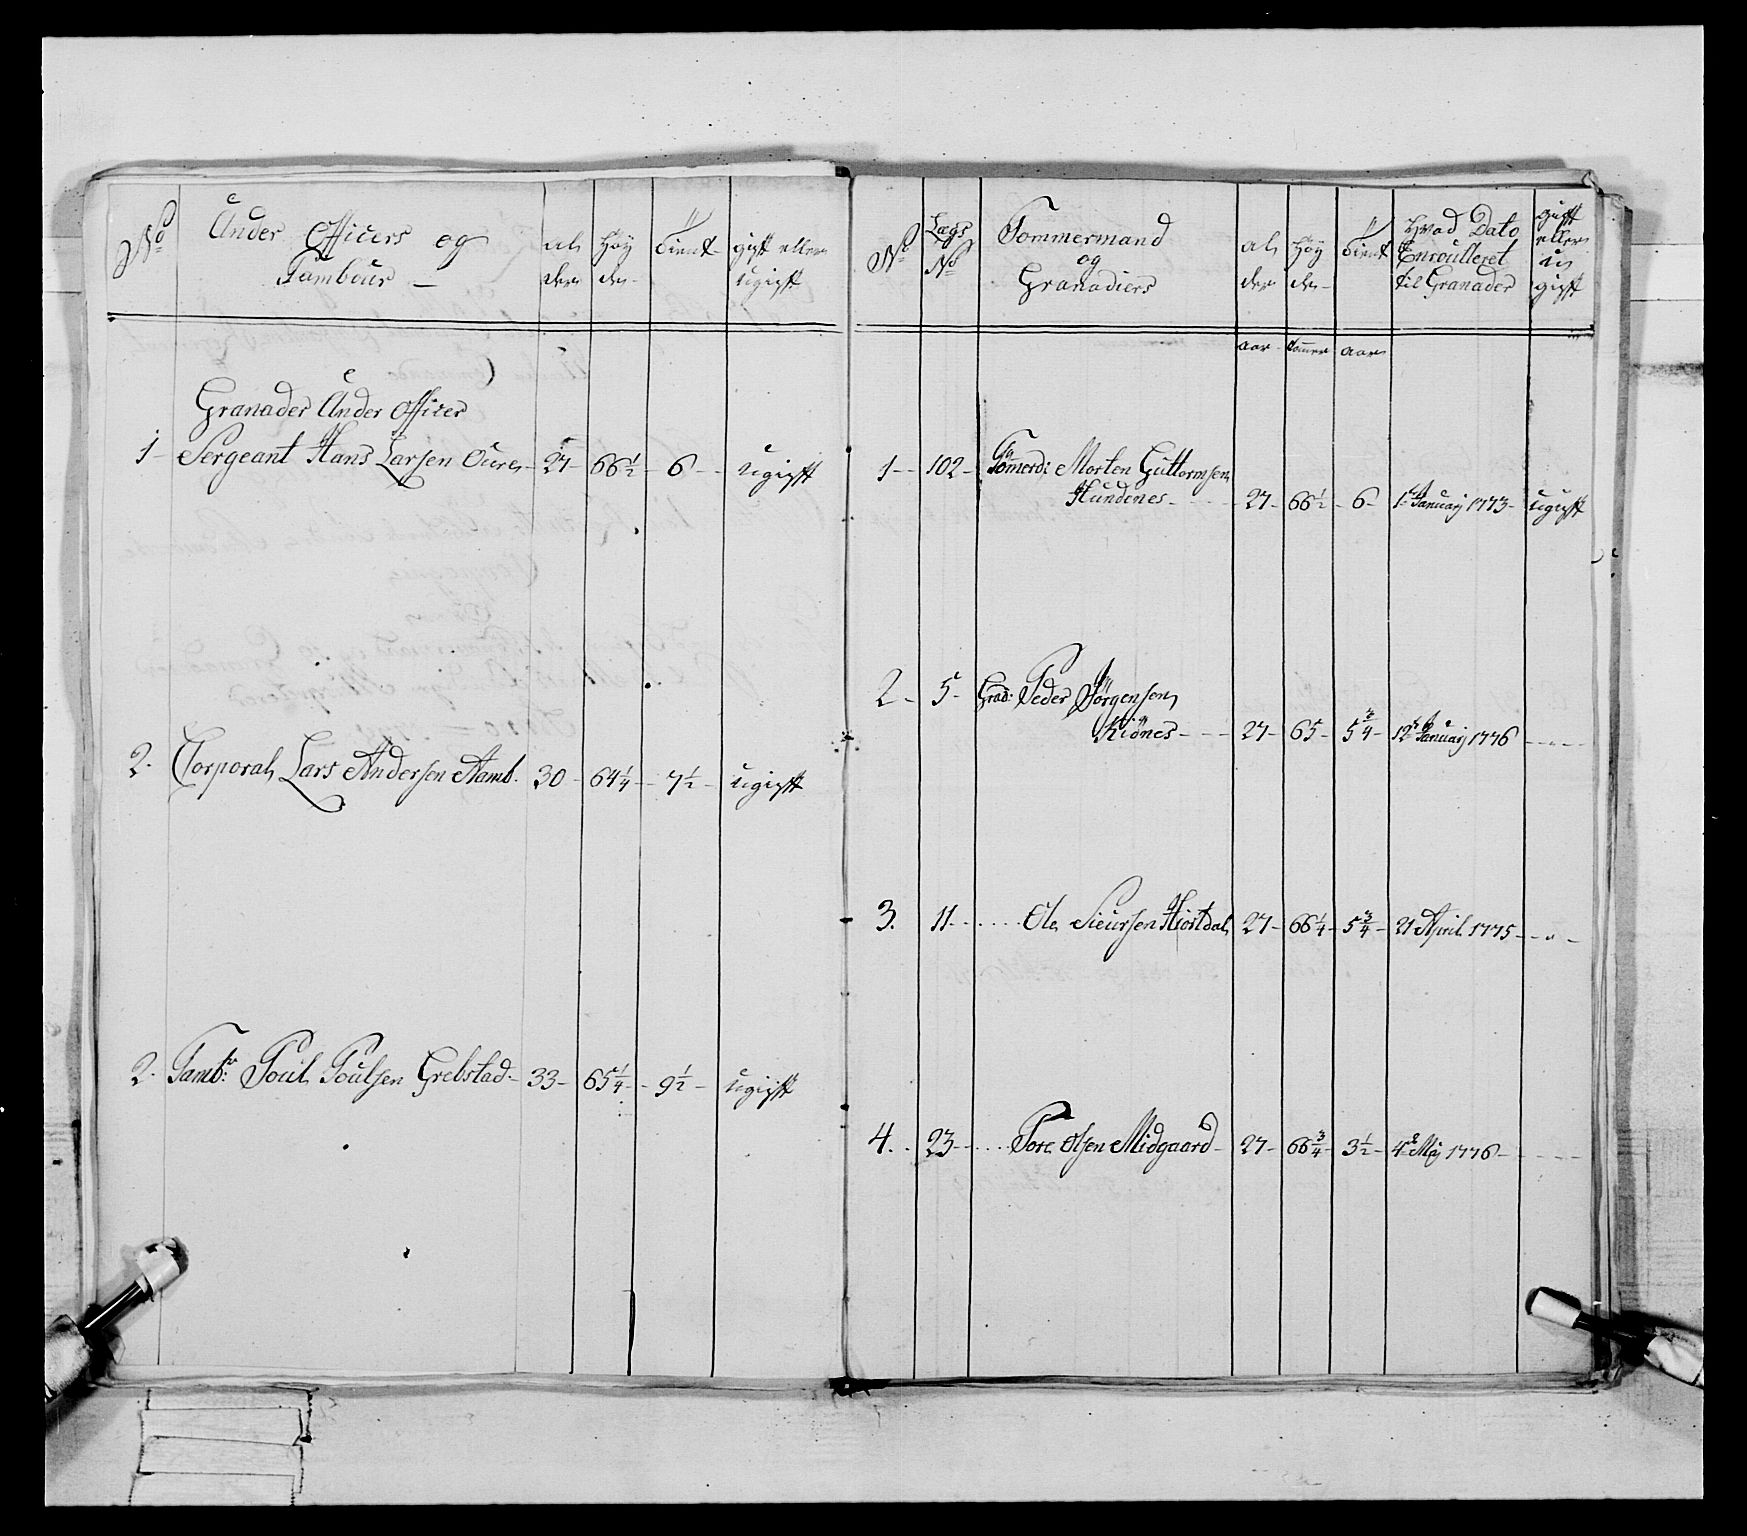 No
Under Officers og
Tambour –
al
der
Høy
de
Tient
gift eller
ugift
Granader Under Officer
1 – Sergeant Hans Larsen Oure – 27 – 66 1/2 – 6 – ugift
2. Corporal Lars Andersen Aamb. 30 – 64 1/4 – 7 1/2 – ugift
2. Tambr: Poul Poulsen Grebstad – 33 – 65 1/4 – 9 1/2 – ugift
No
Lægs
No
Tømmermand
og
Granadiers
al
der
Høy
de –
Tient
Hvad Dato
Enroulleret
til Granader
gift
eller
u
gift
aar
Tommer
aar
1 – 102 – Tømmerd: Morten Guttormsen
Hundenes – 27 – 66 1/2 – 6 – 1te Januarj 1773 – ugift
2 – 5 – Grad: Peder Jørgensen
Kiønes – 27 – 65 – 5 3/4 – 12te Januarj 1776 – „ –
3. 11 – . . . . Ole Sieursen Hiortdal 27 – 66 1/4 – 5 3/4 – 21 April 1775 – „ –
4. . 23 – . . . Tore Olsen Midgaard – 27 – 66 3/4 – 3 1/2 – 4de Maj 1776 – – – –